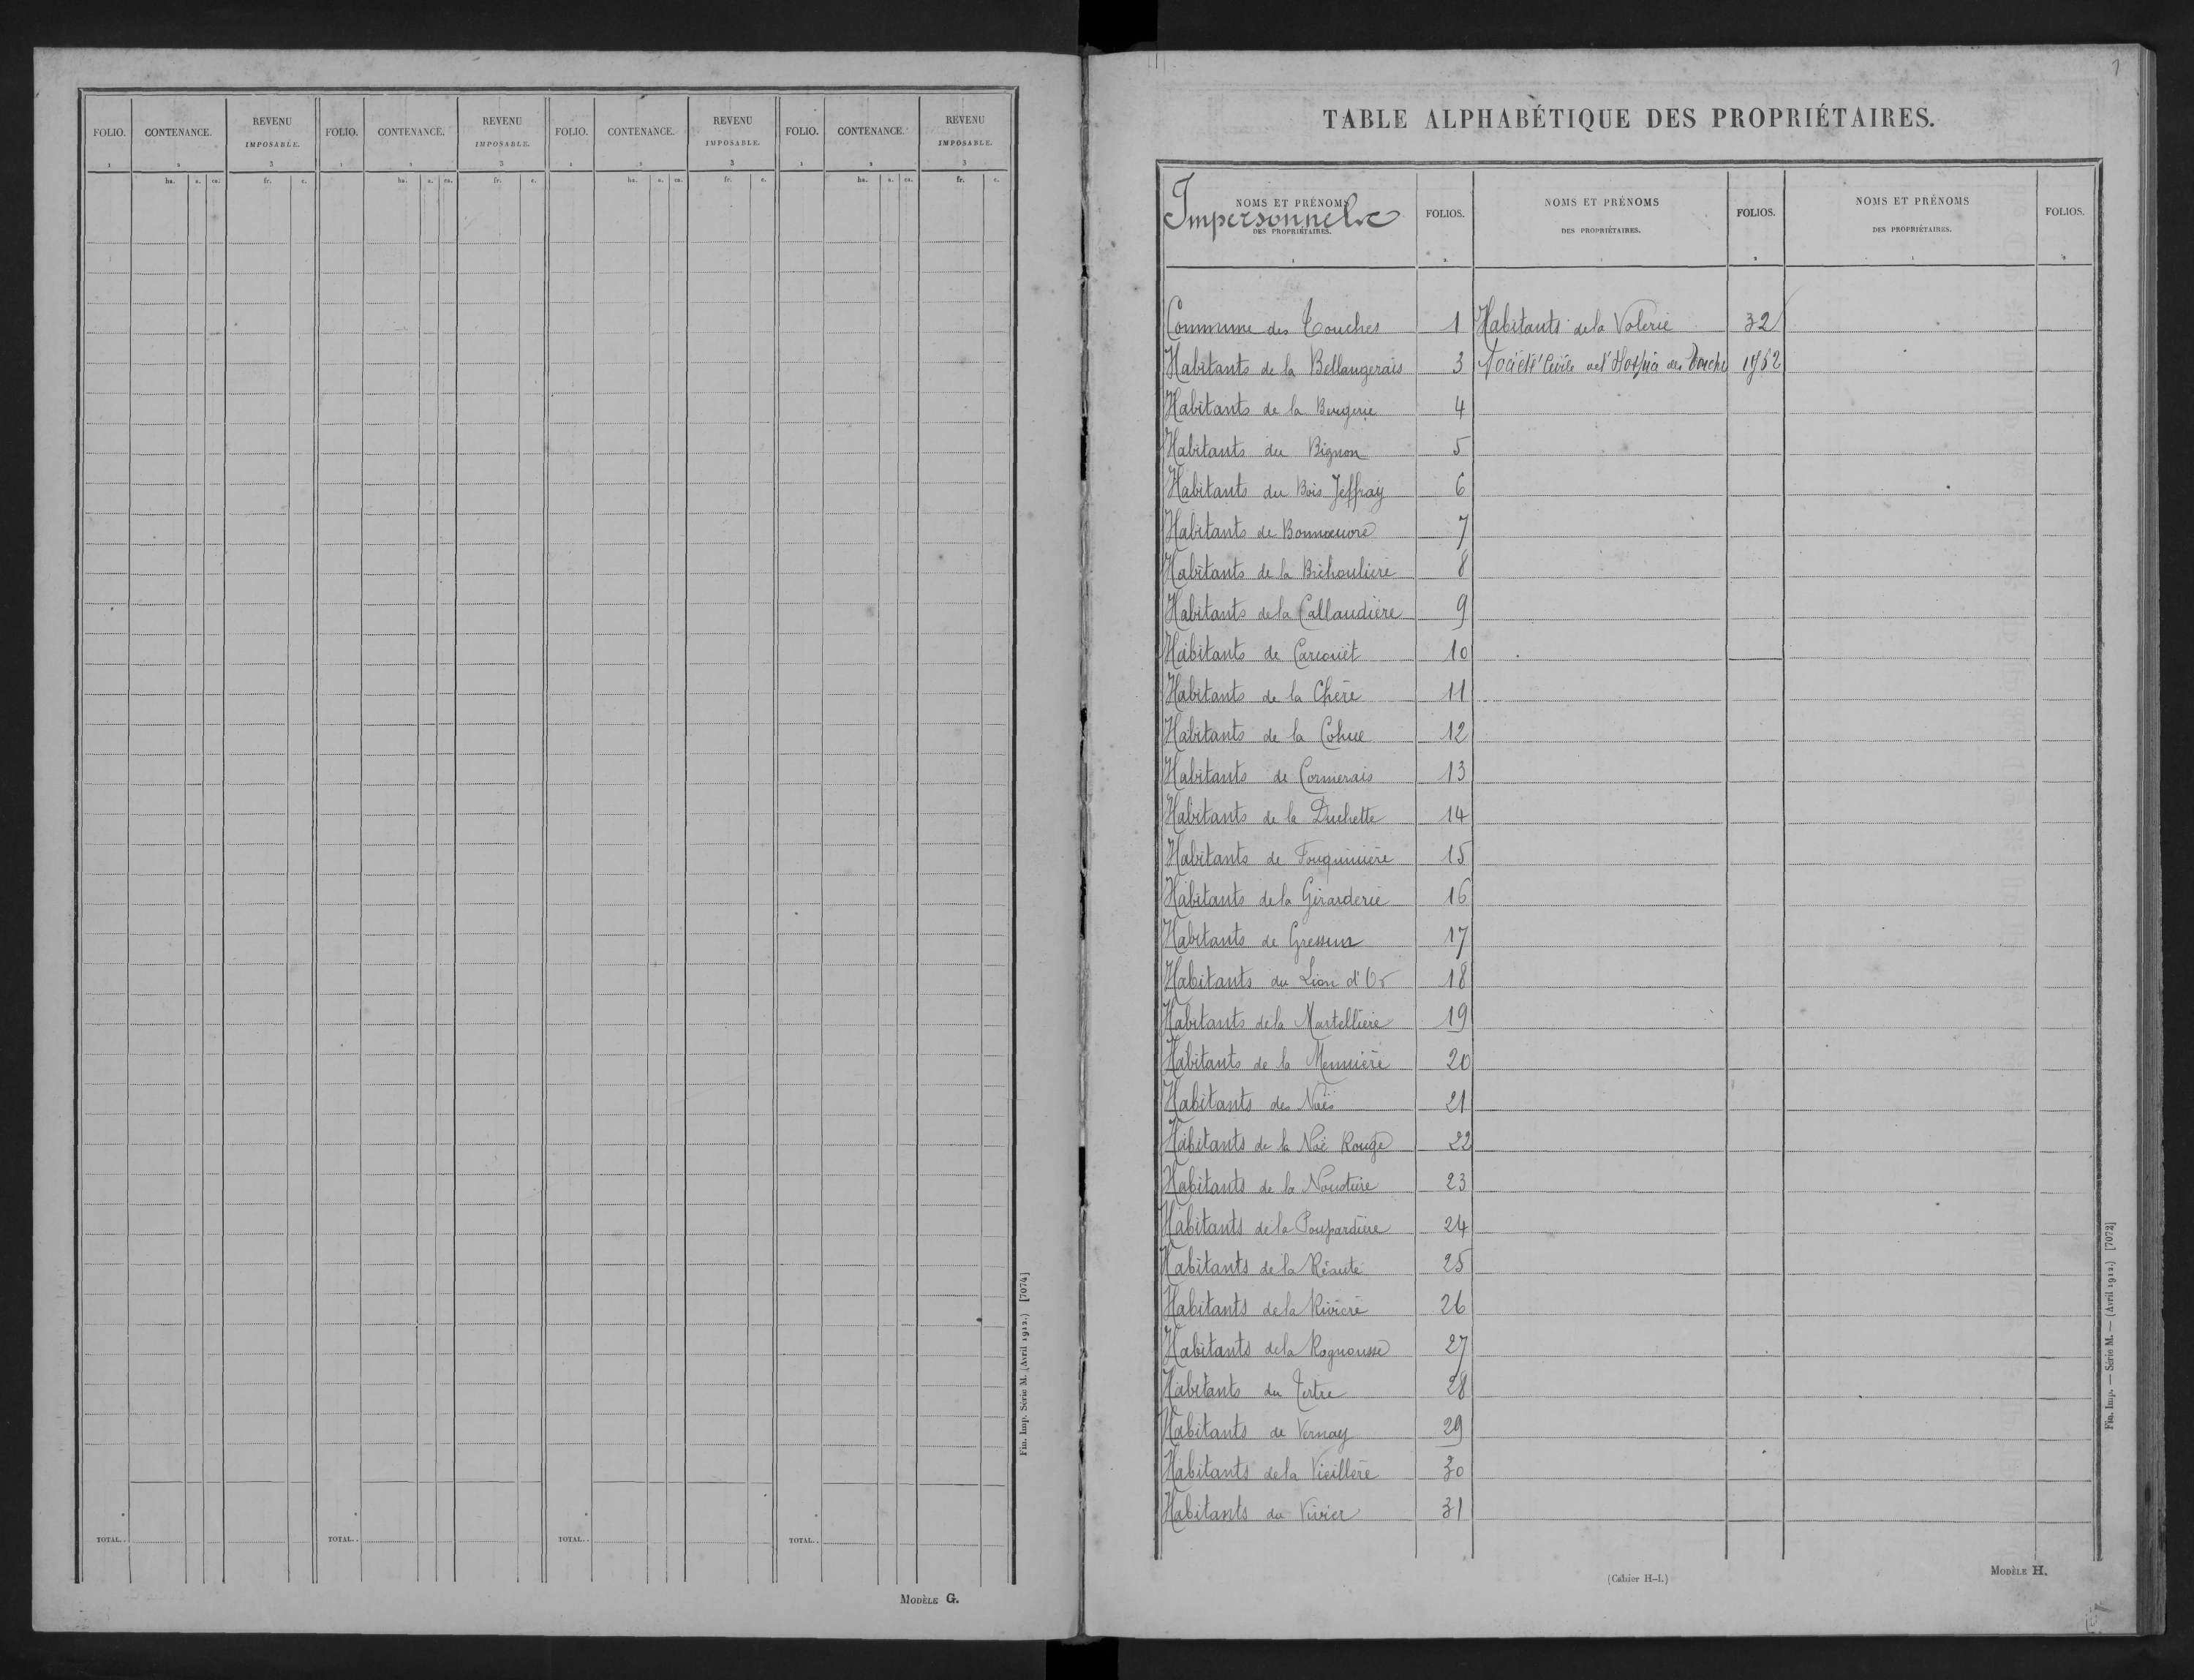 FOLIO. CONTENANCE. REVENU IMPOSABLE. FOLIO. CONTENANCE. REVENU IMPOSABLE. FOLIO. CONTENANCE. REVENU IMPOSABLE. FOLIO. CONTENANCE. REVENU IMPOSABLE.
1 2 3 1 2 3 1 2 3 1 2 3
ha. a. ca. fr. c. ha. a. ca. fr. c. ha. a. ca. fr. c. ha. a. ca. fr. c.
TOTAL.. TOTAL.. TOTAL.. TOTAL..
Fin. Imp. Série M. (Avril 1912.) [7074]
MODÈLE G.
1
TABLE ALPHABÉTIQUE DES PROPRIÉTAIRES.
NOMS ET PRÉNOMS DES PROPRIÉTAIRES. FOLIOS. NOMS ET PRÉNOMS DES PROPRIÉTAIRES. FOLIOS. NOMS ET PRÉNOMS DES PROPRIÉTAIRES. FOLIOS.
Impersonnels
1 2 1 2 1 2
Commune des Touches 1
Habitants de la Bellangerais 3
Habitants de la Beugerie 4
Habitants du Bignon 5
Habitants du Bois Jeffray 6
Habitants de Bonnœuvre 7
Habitants de la Brihoulière 8
Habitants de la Callaudière 9
Habitants de Carcouët 10
Habitants de la Chère 11
Habitants de la Cohue 12
Habitants de Cormerais 13
Habitants de la Duchette 14
Habitants de Fouquinière 15
Habitants de la Girarderie 16
Habitants de Gressun 17
Habitants du Lion d'Or 18
Habitants de la Martellière 19
Habitants de la Meunière 20
Habitants des Noës 21
Habitants de la Noë Rouge 22
Habitants de la 23
Habitants de la Poupardière 24
Habitants de la Réauté 25
Habitants de la Rivière 26
Habitants de la Rognousse 27
Habitants du Tertre 28
Habitants de Vernay 29
Habitants de la Vieillère 30
Habitants du Vivier 31
Habitants de la Volerie 32
Société Civile de l'Hospice des Touches 1762
(Cahier H-I.)
MODÈLE H.
Fin. Imp. — Série M. — (Avril 1912.) [7072]